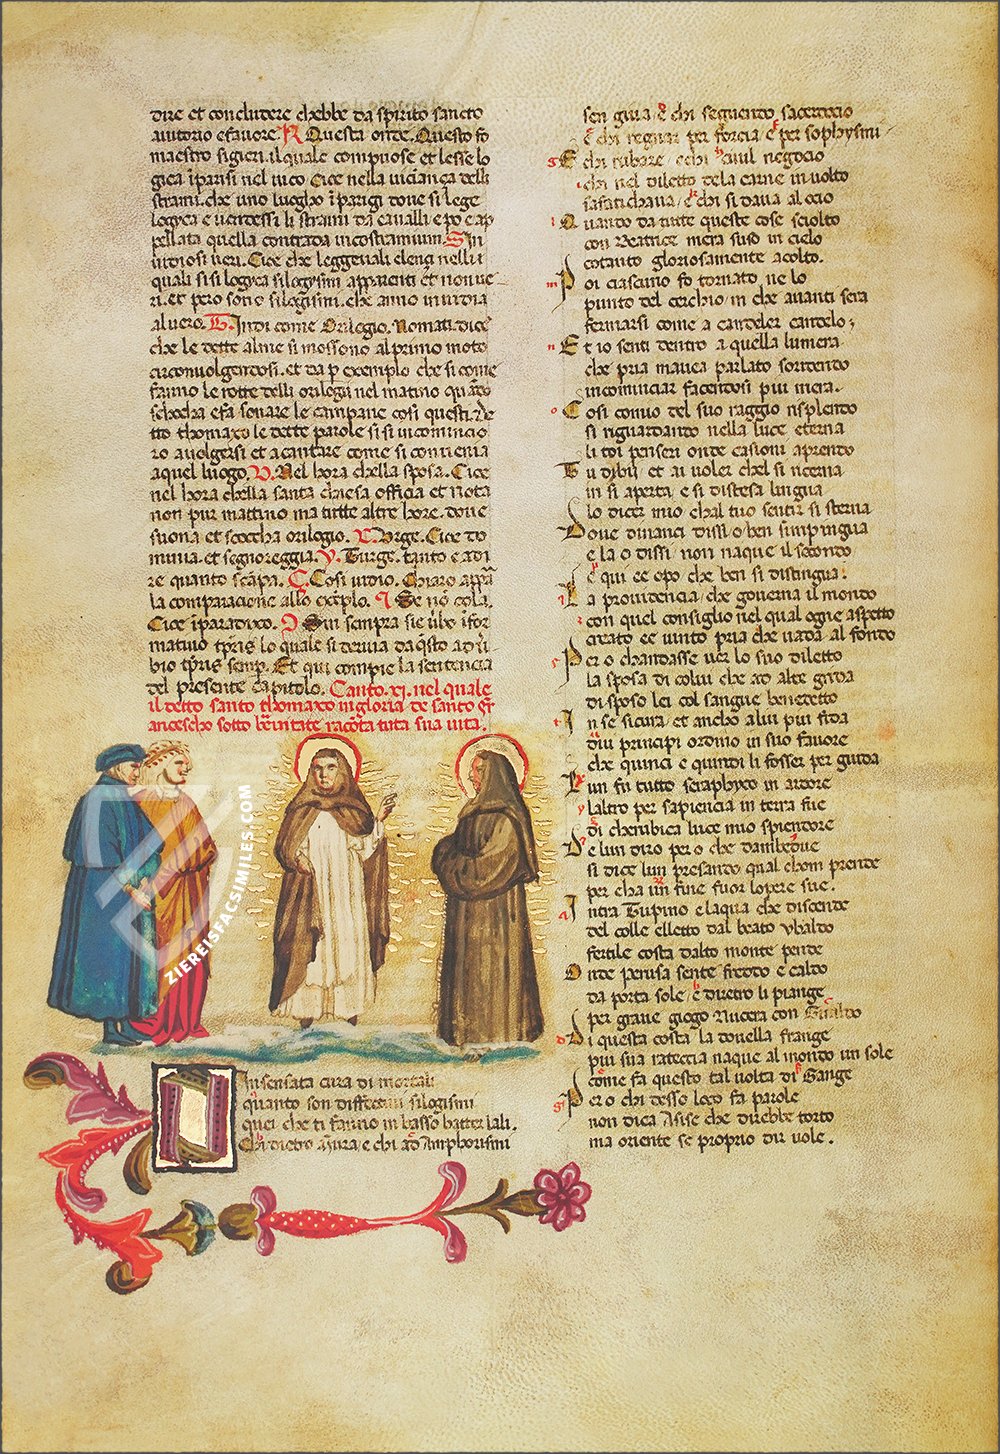 dire et concludere chebbe da spirito sancto
autorio e favore. R Questa onde. Questo fo
maestro sigieri. il quale compuose et lesse lo
gica ĩ parisi nel vico Cice nella vicinança delli
strami. che uno luogho ĩ parigi dove si lege
logyca e vendessi li strami da cavalli e po e ap
pellata quella contrada in costramium. S In
vidiosi veri. Cice che leggevali elenci nelli
quali si silogyca silogysmi apparenti et non ve
ri. et pero sono silogismi. che anno invidia
al vero. T. Indi come Orilegio. Nomati. dice
che le dette alme si mossono al primo moto
circonvolgendosi. et da p exemplo che si come
fanno le rotte delli orilegii nel matino quãdo
schocha e fa sonare le campane cosi questi. De
tto thomaxo le dette parole si si incomincio
ro a volgersi et a cantare come si convenia
a quel luogo. V. Nel hora chella sposa. Cice
nel hora chella santa chiesa officia et nota
non pur mattino ma tutte altre hore. dove
suona et scoccha orilogio. Urge. Cice co
muva. et segnoreggia. Y. Turge. tanto e a di
re quanto scãpa. Cosi vidio. Chiaro appã
la comparacione allo exẽplo. Se nõ cola.
Cice ĩ paradixo. Sin sempra sie vbo ĩfor
mativo tpris lo quale si deriva da q̃sto adv̂
bio tpris semp. Et qui compie la sentencia
del presente capitolo. Canto. xi. nel quale
il detto santo thomaxo in gloria de santo fr
ancescho sotto brevitate racõta tuta sua vita.
ZIEREISFACSIMILES.COM
O Insensata cura di mortali
quanto son diffectivi silogismi
quei che ti fanno in basso batter lali.
Chi dietro a Iura e chi ad Amphorismi
sen giva e chi seguendo sacerdocio
e chi regnar per forcia e per sophysmi
E chi rubare e chi civil negocio
chi nel diletto dela carne involto
safatichava e chi si dava al ocio
Quando da tutte queste cose sciolto
con Beatrice mera suso in cielo
cotanto gloriosamente acolto.
Poi ciascuno fo tornato ne lo
punto del cerchio in che avanti sera
fermarsi come a candeler candelo;
Et io senti dentro a quella lumera
che pria mavea parlato sorridendo
incominciar facendosi piu mera.
Cosi comio del suo raggio risplendo
si riguardando nella luce eterna
li toi penseri onde casioni aprendo
Tu dybii et ai voler chel si ricerna
in si aperta e si distesa lingua
lo dicer mio chal tuo sentir si sterna
Dove dinanci dissi o ben simpingua
e la o dissi non naque il secondo
e qui ee opo che ben si distingua.
La providencia che governa il mondo
con quel consiglio nel qual ogne aspetto
creato ee vinto pria che vada al fondo
Pero chandasse ver lo suo diletto
la sposa di colui che ad alte grida
disposo lei col sangue benedetto
In se sicura et ancho a lui piu fida
dui principi ordino in suo favore
che quinci e quindi li fosser per guida
Lun fu tutto seraphyco in ardore
laltro per sapiencia in terra fue
di cherubica luce uno splendore
De lun diro pero che dambedue
si dice lun presando qual chom prende
per cha un fine fuor lopere sue.
Intra Tupino e laqua che discende
del colle elletto dal beato Ubaldo
fertile costa dalto monte pende
Onde perusa sente freddo e caldo
da porta sole e dietro li piange
per grave giogo Nucera con Gualdo
Di questa costa la dovella frange
piu sua rateccia naque al mondo un sole
come fa questo tal volta di Gange
Pero chi desso loco fa parole
non dica Asise che direbbe corto
ma oriente se proprio dir vole.